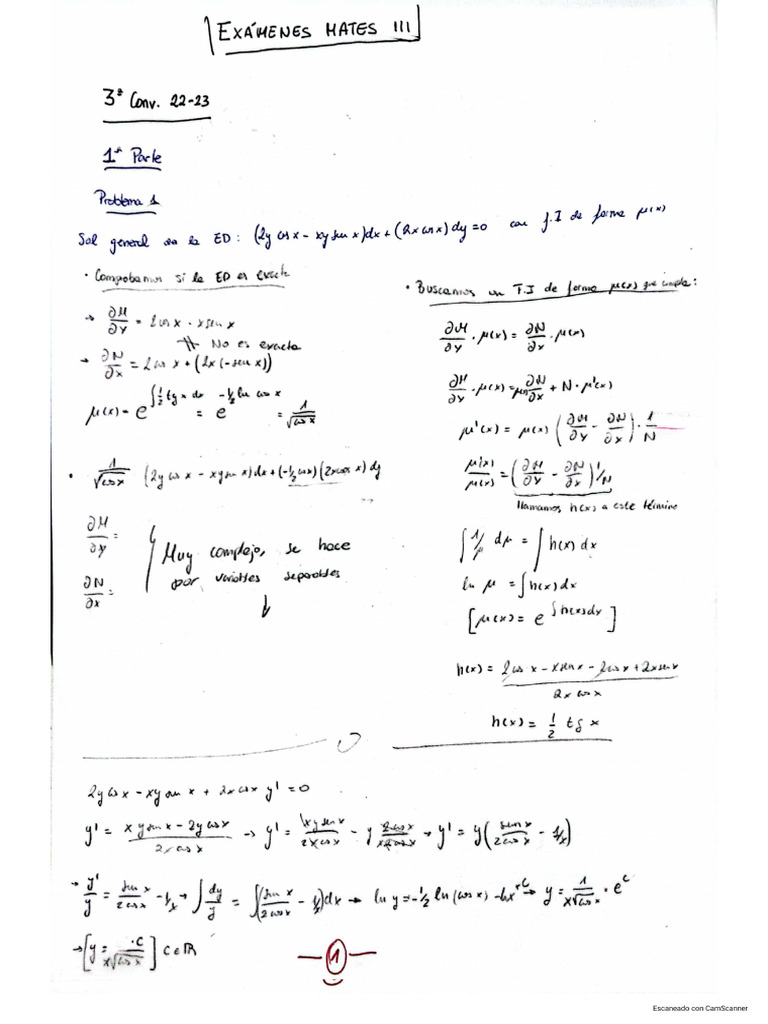 EXÁMENES MATES III
3ª Conv. 22-23
1ª Parte
Problema 1
Sol general de la ED: (2y cos x - xy sen x)dx + (2x cos x)dy = 0 con f.I de forma μ(x)
· Comprobamos si la ED es exacta
→ ∂M/∂y = 2cos x · x sen x
≠ No es exacta
→ ∂N/∂x = 2cos x + (2x(-sen x))
μ(x) = e^{∫1/2 tg x dx} = e^{-1/2 ln cos x} = 1/√cos x
· 1/√cos x (2y cos x - xy sen x)dx + (-1/2 cos x)(2x cos x)dy
∂M/∂y =
∂N/∂x =
Muy complejo, se hace
por variables separables
↓
· Buscamos un F.I de forma μ(x) que cumpla:
∂M/∂y · μ(x) = ∂N/∂x · μ(x)
∂M/∂y · μ(x) = μ(x) ∂N/∂x + N · μ'(x)
μ'(x) = μ(x) (∂M/∂y - ∂N/∂x) · 1/N
μ'(x)/μ(x) = (∂M/∂y - ∂N/∂x) 1/N
llamamos h(x) a este término
∫ 1/μ dμ = ∫ h(x) dx
ln μ = ∫ h(x) dx
[μ(x) = e^{∫h(x)dx}]
h(x) = (2cos x - x sen x - 2cos x + 2x sen x)/(2x cos x)
h(x) = 1/2 tg x
2y cos x - xy sen x + 2x cos x y' = 0
y' = (xy sen x - 2y cos x)/(2x cos x) → y' = xy sen x/(2x cos x) - y 2cos x/(x2cos x) → y' = y(sen x/(2cos x) - 1/x)
→ y'/y = sen x/(2cos x) - 1/x → ∫ dy/y = ∫(sen x/(2cos x) - 1/x)dx → ln y = -1/2 ln(cos x) - ln x + C → y = 1/(x√cos x) · e^C
→ [y = · C/(x√cos x)] C∈ℝ
1
Escaneado con CamScanner